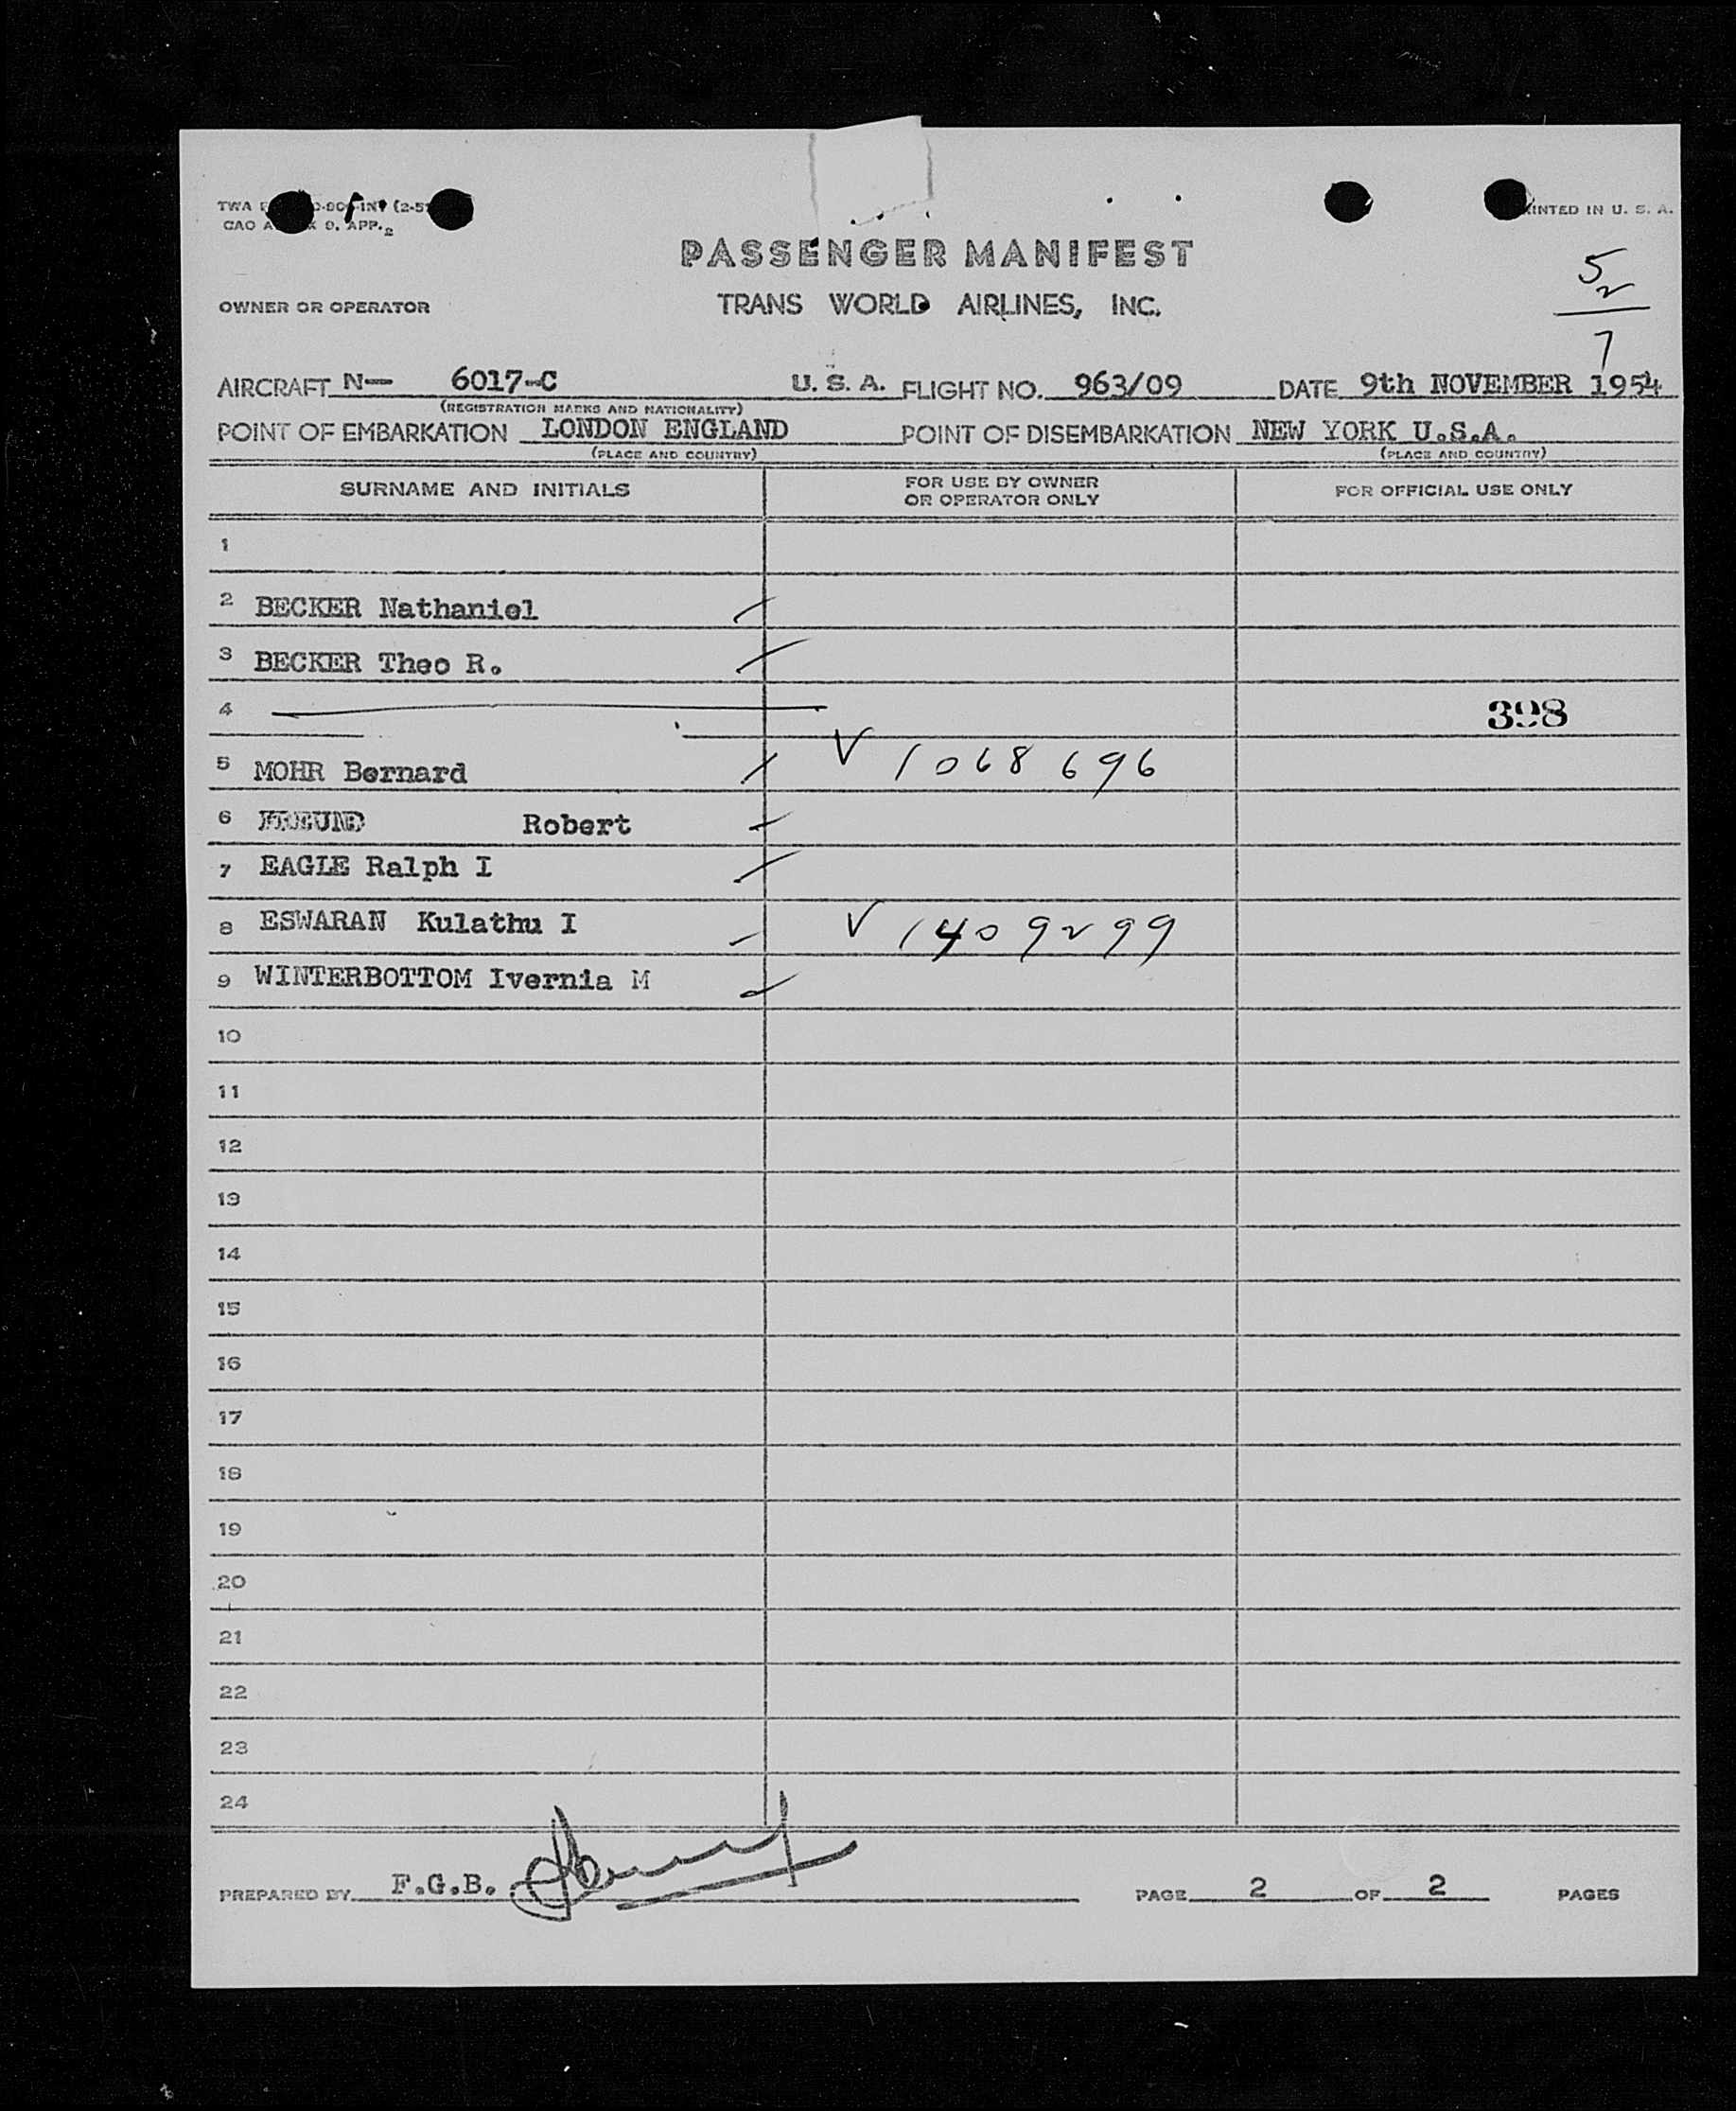 PRINTED IN U. S. A.
PASSENGER MANIFEST
5
2
7
OWNER OR OPERATOR
TRANS WORLD AIRLINES, INC.
AIRCRAFT N— 6017-C U. S. A. FLIGHT NO. 963/09 DATE 9th NOVEMBER 1954
(REGISTRATION MARKS AND NATIONALITY)
POINT OF EMBARKATION LONDON ENGLAND POINT OF DISEMBARKATION NEW YORK U.S.A.
(PLACE AND COUNTRY) (PLACE AND COUNTRY)
SURNAME AND INITIALS FOR USE BY OWNER OR OPERATOR ONLY FOR OFFICIAL USE ONLY
1
2 BECKER Nathaniel
3 BECKER Theo R.
4 398
5 MOHR Bernard V 1068696
6 Robert
7 EAGLE Ralph I
8 ESWARAN Kulathu I V 1409299
9 WINTERBOTTOM Ivernia M
10
11
12
13
14
15
16
17
18
19
20
21
22
23
24
PREPARED BY F.G.B. PAGE 2 OF 2 PAGES